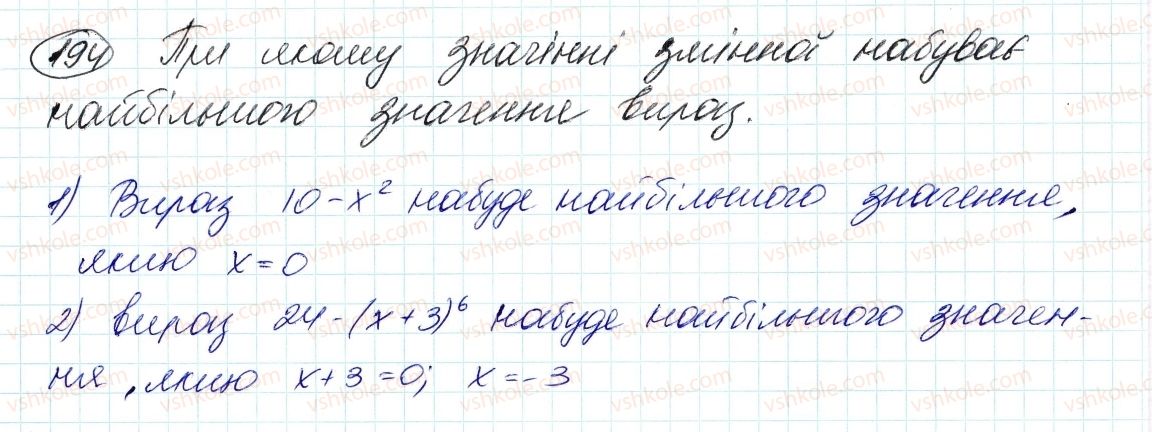 194 При якому значінні змінної набуває
найбільшого значення вираз.
1) Вираз 10 - x² набуде найбільшого значення,
якщо x = 0
2) вираз 24 - (x + 3)⁶ набуде найбільшого значен-
ня, якщо x + 3 = 0; x = -3